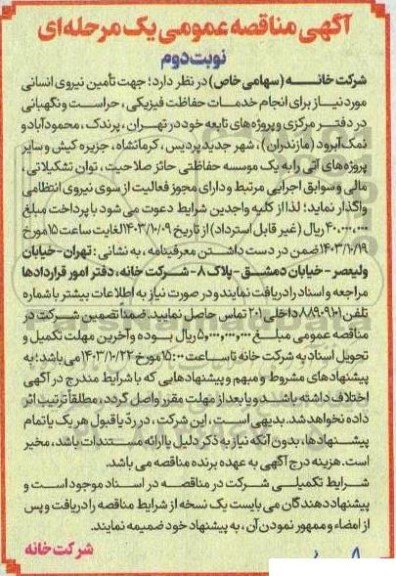 آگهی مناقصه عمومی یک مرحله‌ای
نوبت دوم
شرکت خانه (سهامی خاص) در نظر دارد؛ جهت تأمین نیروی انسانی
مورد نیاز برای انجام خدمات حفاظت فیزیکی، حراست و نگهبانی
در دفتر مرکزی و پروژه های تابعه خود در تهران، پرندک، محمودآباد و
نمک آبرود (مازندران)، شهر جدید پردیس، کرمانشاه، جزیره کیش و سایر
پروژه‌های آتی را به یک موسسه حفاظتی حائز صلاحیت، توان تشکیلاتی،
مالی و سوابق اجرایی مرتبط و دارای مجوز فعالیت از سوی نیروی انتظامی
واگذار نماید؛ لذا از کلیه واجدین شرایط دعوت می شود با پرداخت مبلغ
۴۰,۰۰۰,۰۰۰ ریال (غیر قابل استرداد) از تاریخ ۱۴۰۳/۱۰/۰۹ لغایت ساعت ۱۵ مورخ
۱۴۰۳/۱۰/۱۹ ضمن در دست داشتن معرفینامه، به نشانی: تهران-خیابان
ولیعصر-خیابان دمشق-پلاک ۸-شرکت خانه، دفتر امور قراردادها
مراجعه و اسناد را دریافت نمایند و در صورت نیاز به اطلاعات بیشتر با شماره
تلفن ۸۸۹۰۹۱۰۱ داخلی ۲۰۱ تماس حاصل نمایید. ضمنا تضمین شرکت در
مناقصه عمومی مبلغ ۵,۰۰۰,۰۰۰,۰۰۰ ریال بوده و آخرین مهلت تکمیل و
تحویل اسناد به شرکت خانه تا ساعت ۱۵:۰۰ مورخ ۱۴۰۳/۱۰/۲۲ می باشد؛ به
پیشنهادهای مشروط و مبهم و پیشنهادهایی که با شرایط مندرج در آگهی
اختلاف داشته باشد و یا بعد از مهلت مقرر واصل گردد، مطلقاً ترتیب اثر
داده نخواهد شد. بدیهی است، این شرکت، در ردّ یا قبول هر یک یا تمام
پیشنهادها، بدون آنکه نیاز به ذکر دلیل یا ارائه مستندات باشد، مخیر
است. هزینه درج آگهی به عهده برنده مناقصه می باشد.
شرایط تکمیلی شرکت در مناقصه در اسناد موجود است و
پیشنهاد دهندگان می بایست یک نسخه از شرایط مناقصه را دریافت و پس
از امضاء و ممهور نمودن آن، به پیشنهاد خود ضمیمه نمایند.
شرکت خانه